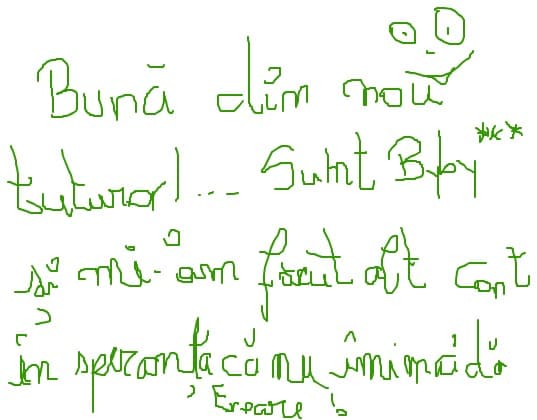 Bună din nou
tuturor!... Sunt Bby***
și mi-am făcut alt cont
în speranța că nu îmi mai dă
Eroare